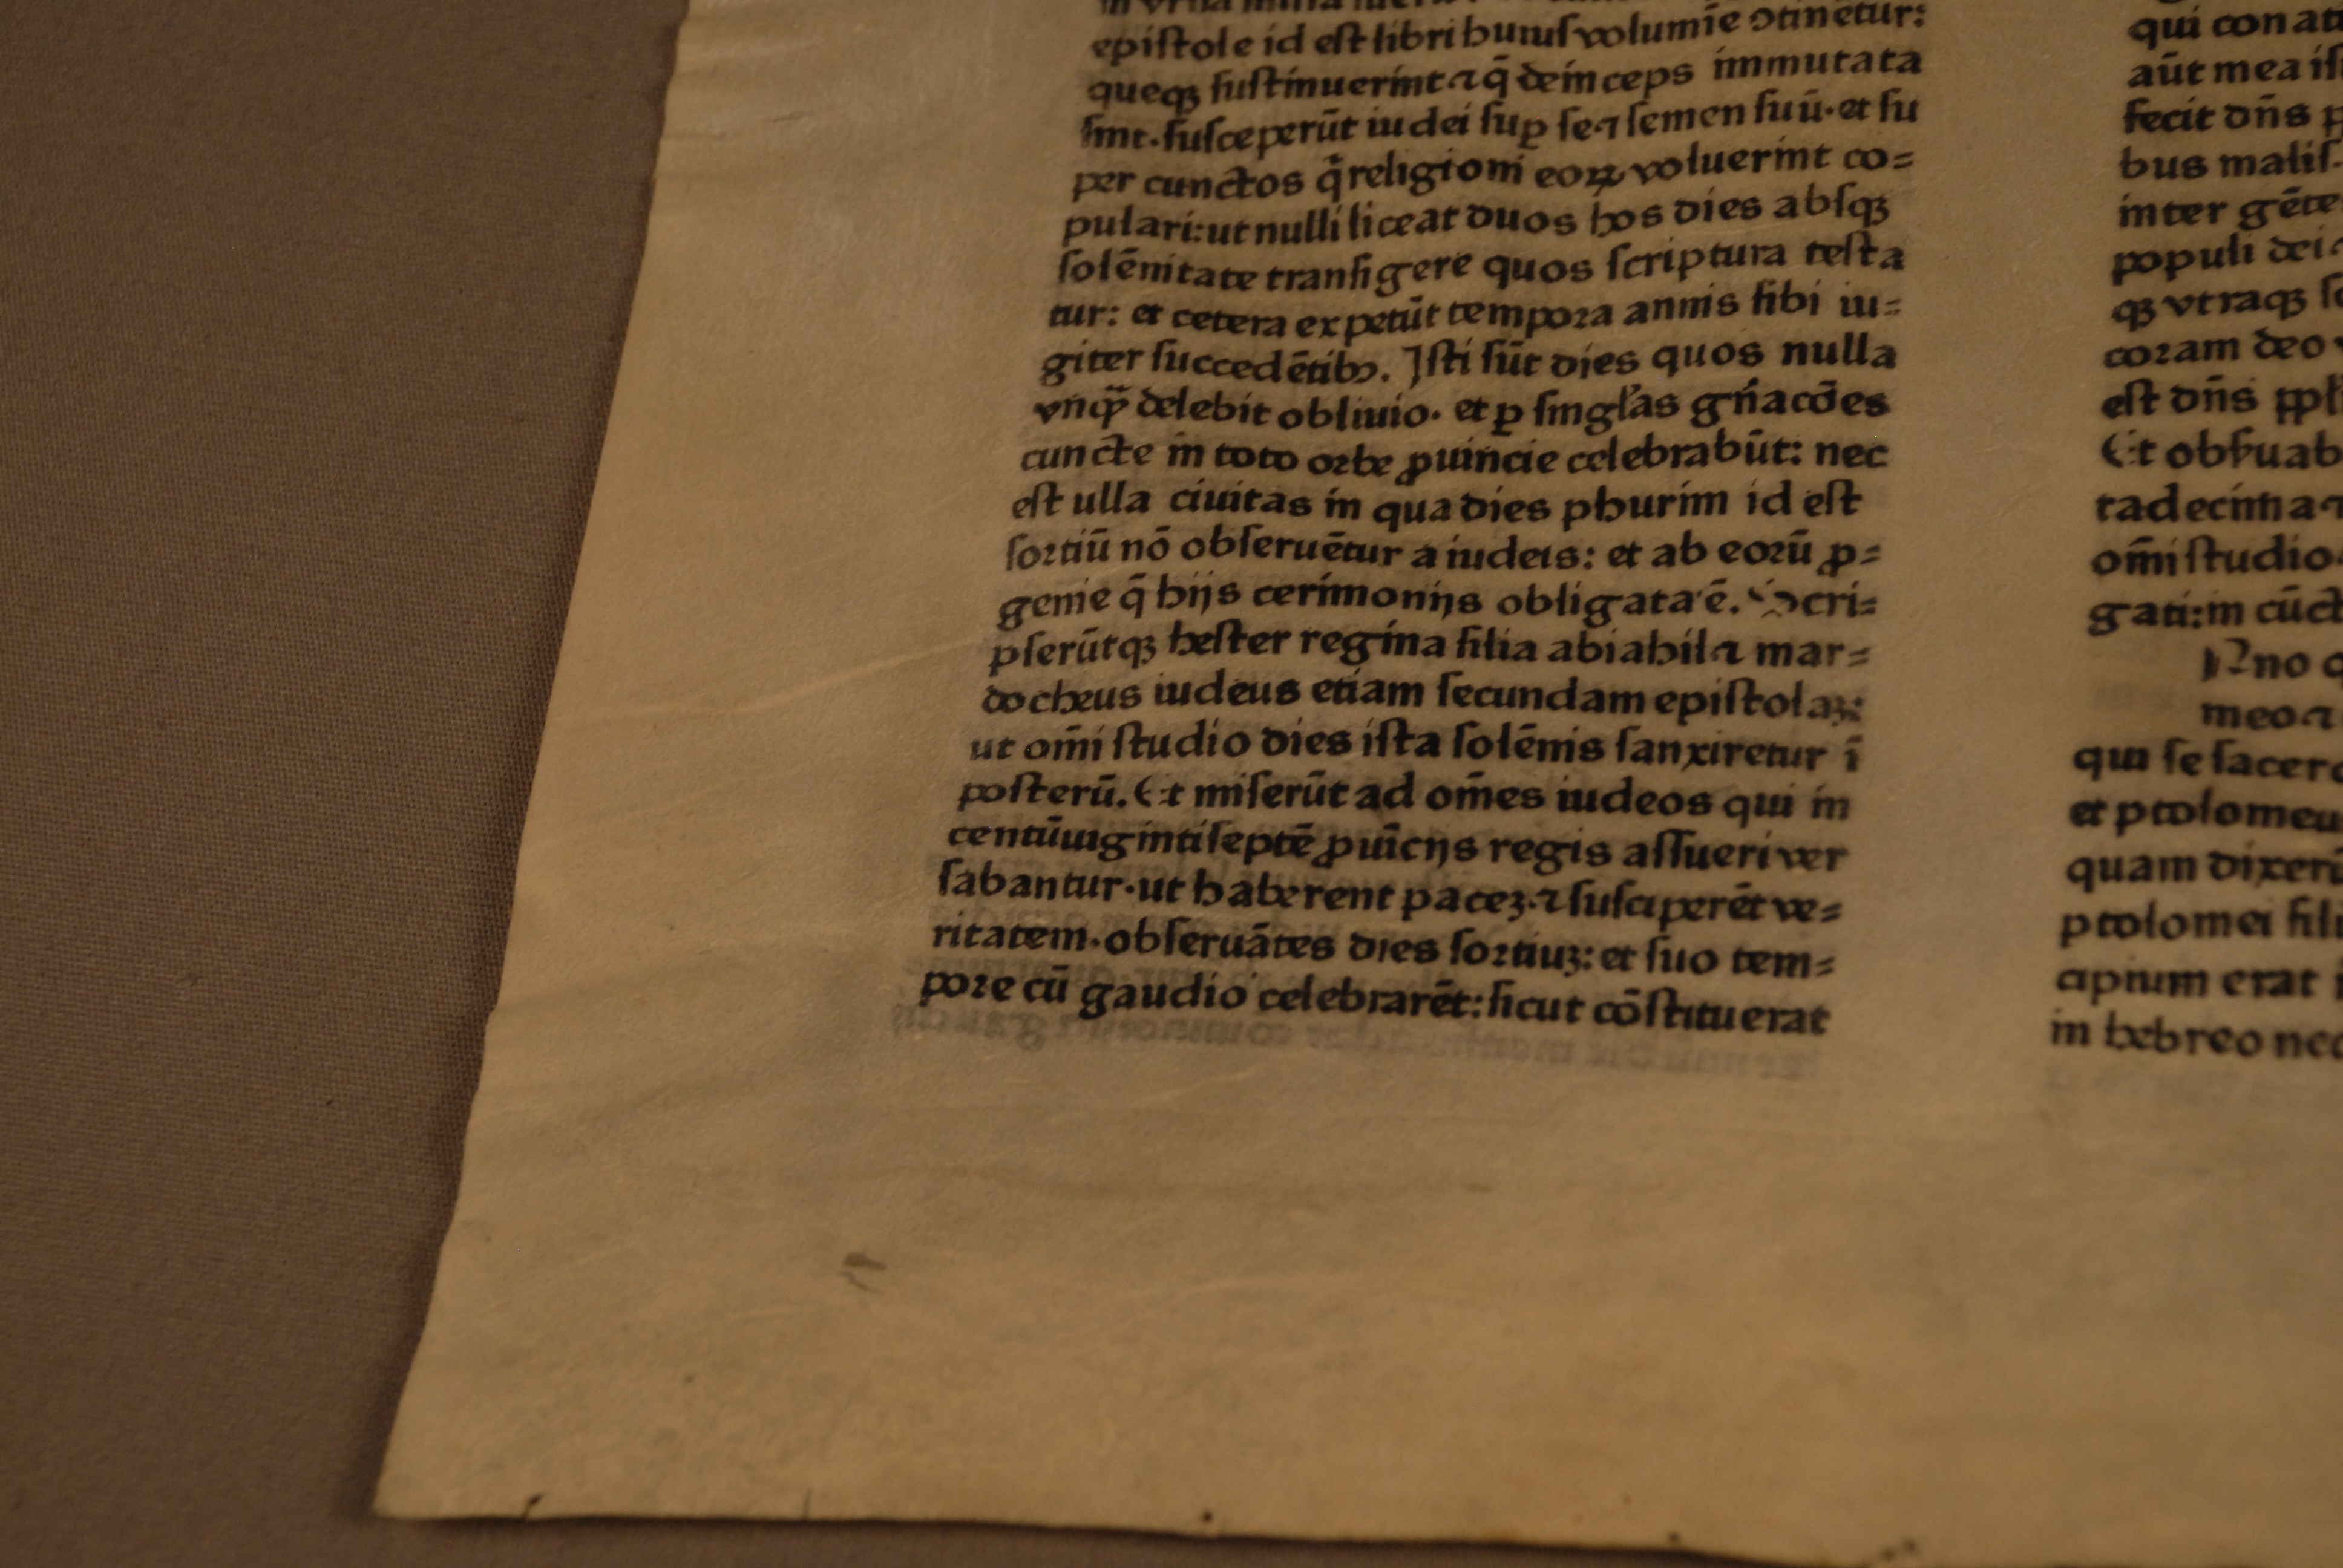 epiſtole id eſt libri huiuſ volumīe ↄtinetur:
queqꝫ ſuſtinuerint ⁊ q̄ deinceps immutata
ſint·ſuſceperūt iudei ſuꝑ ſe ⁊ ſemen ſuū·et ſu
per cunctos q̄ religioni eoꝝ voluerint co=
pulari:ut nulli liceat duos hos dies abſqꝫ
ſolēnitate tranſigere quos ſcriptura teſta
tur: et cetera expetūt tempoꝛa annis ſibi iu=
giter ſuccedētibꝰ. Iſti ſūt dies quos nulla
vnqͣꝫ delebit obliuio· et ꝑ ſingl'as gn̄acōes
cuncte in toto oꝛbe ꝓuincie celebrabūt: nec
eſt ulla ciuitas in qua dies phurim id eſt
ſoꝛtiū nō obſeruētur a iudeis: et ab eoꝛū ꝓ=
genie q̄ hijs cerimonijs obligata ē. Scri=
pſerūtqꝫ heſter regina filia abiahil ⁊ mar=
docheus iudeus etiam ſecundam epiſtolaꝫ:
ut om̄i ſtudio dies iſta ſolēnis ſanxiretur ī
poſterū. Et miſerūt ad om̄es iudeos qui in
centūuigintiſeptē ꝓuīcijs regis aſſueri ver
ſabantur·ut haberent paceꝫ·⁊ ſuſciperēt ve=
ritatem·obſeruātes dies ſoꝛtiuꝫ: et ſuo tem=
poꝛe cū gaudio celebrarēt: ſicut cōſtituerat
qui con
aūt mea
fecit dn̄s
bus maliſ
inter gēte
populi dei
qꝫ vtraqꝫ
coꝛam deo
eſt dn̄s
Et obſſuab
tadecima ⁊
om̄i ſtudio
gati:in cūct
Anno
meo ⁊
qui ſe ſacer
et ptolomeu
quam dixer
ptolomei fili
cipium erat
in hebreo nec